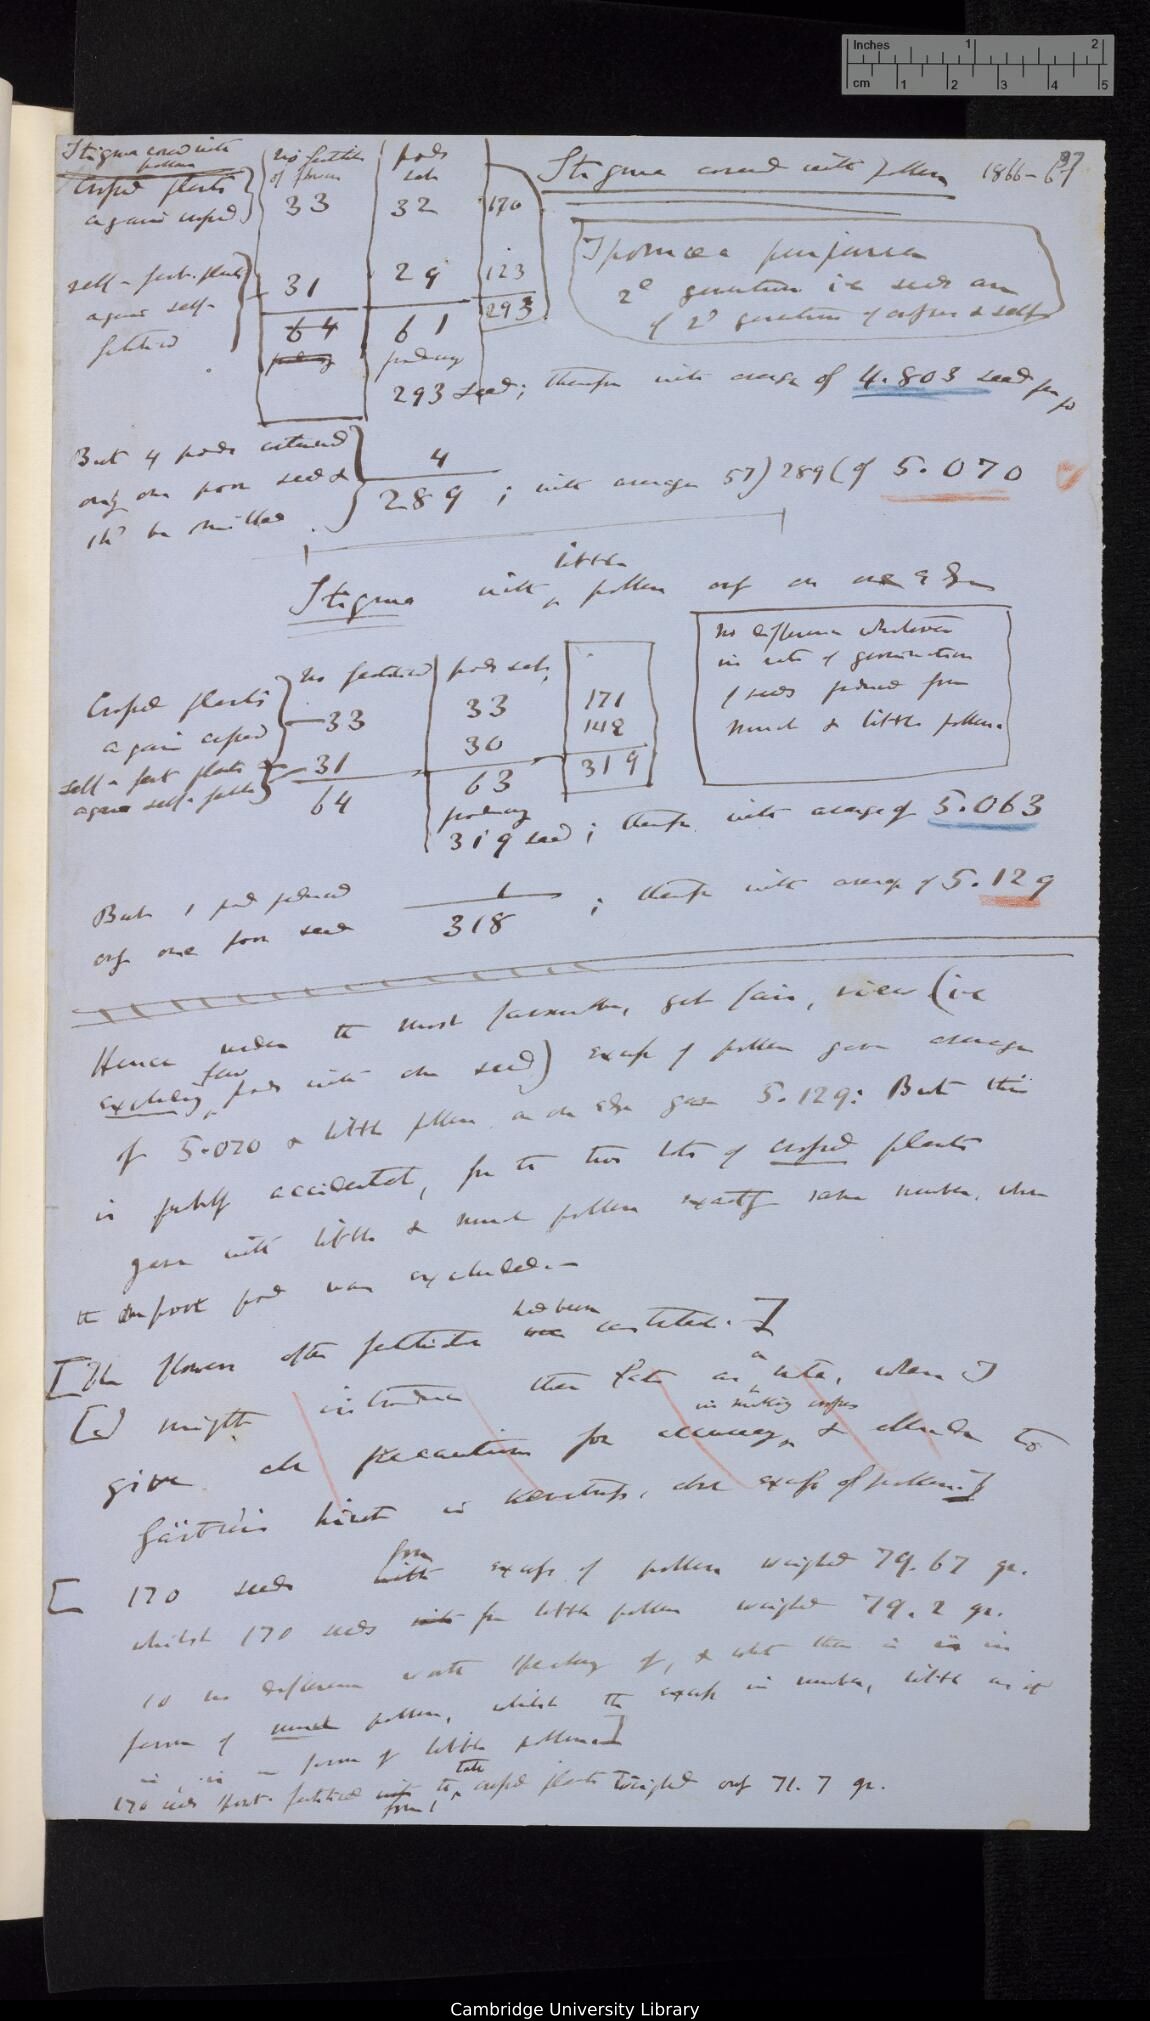 Inches 1 2
cm 1 2 3 4 5
37
Stigma covered with pollen 1866-67
Stigma covered with pollen
no fertilised of flowers
pods set
Crossed plants again crossed 33 32 170
self-fert. plants again self-fertilised 31 29 123
64 61 293
producing
293 seed; therefore with average of 4.803 seed per
Ipomoea purpurea
2d generation ie seeds
of 2d generation of crosses & selfs
But 4 pods contained
only one poor seed &
shd be omitted.
4
289 ; with average 57) 289 (of 5.070
Stigma with little pollen only on one edge
no difference whatever
in rate of germination
of seeds produced from
much & little pollen.
no fertilised pods set
Crossed plants again crossed 33 33 171
self-fert plants again self-fertil 31 30 148
64 63 319
producing
319 seed; therefore with average of 5.063
But 1 pod produced
only one poor seed
1
318 ; therefore with average of 5.129
Hence under the most favourable, yet fair, view (ie
excluding few pods with one seed) excess of pollen gave average
of 5.020 & little pollen on one edge gave 5.129: But this
is probably accidental, for the two lots of crossed plants
gave with little & much pollen exactly same number, when
the poor pod was excluded.—
[The flowers after fertilisation had been castrated.]
[I might introduce this fact as a note, when I
give all precautions for accuracy in making crosses, & allude to
Gärtner's hint in Verbascum, about excess of pollen.]
[ 170 seeds from excess of pollen weighed 79.67 gr.
whilst 170 seeds from little pollen weighed 79.2 gr.
so no difference worth speaking of, & what there is is in
favour of much pollen, whilst the excess in number, little as it
is, is in favour of little pollen.]
170 seeds spont. fertilised from the tall crossed plants weighed only 71.7 gr.
Cambridge University Library